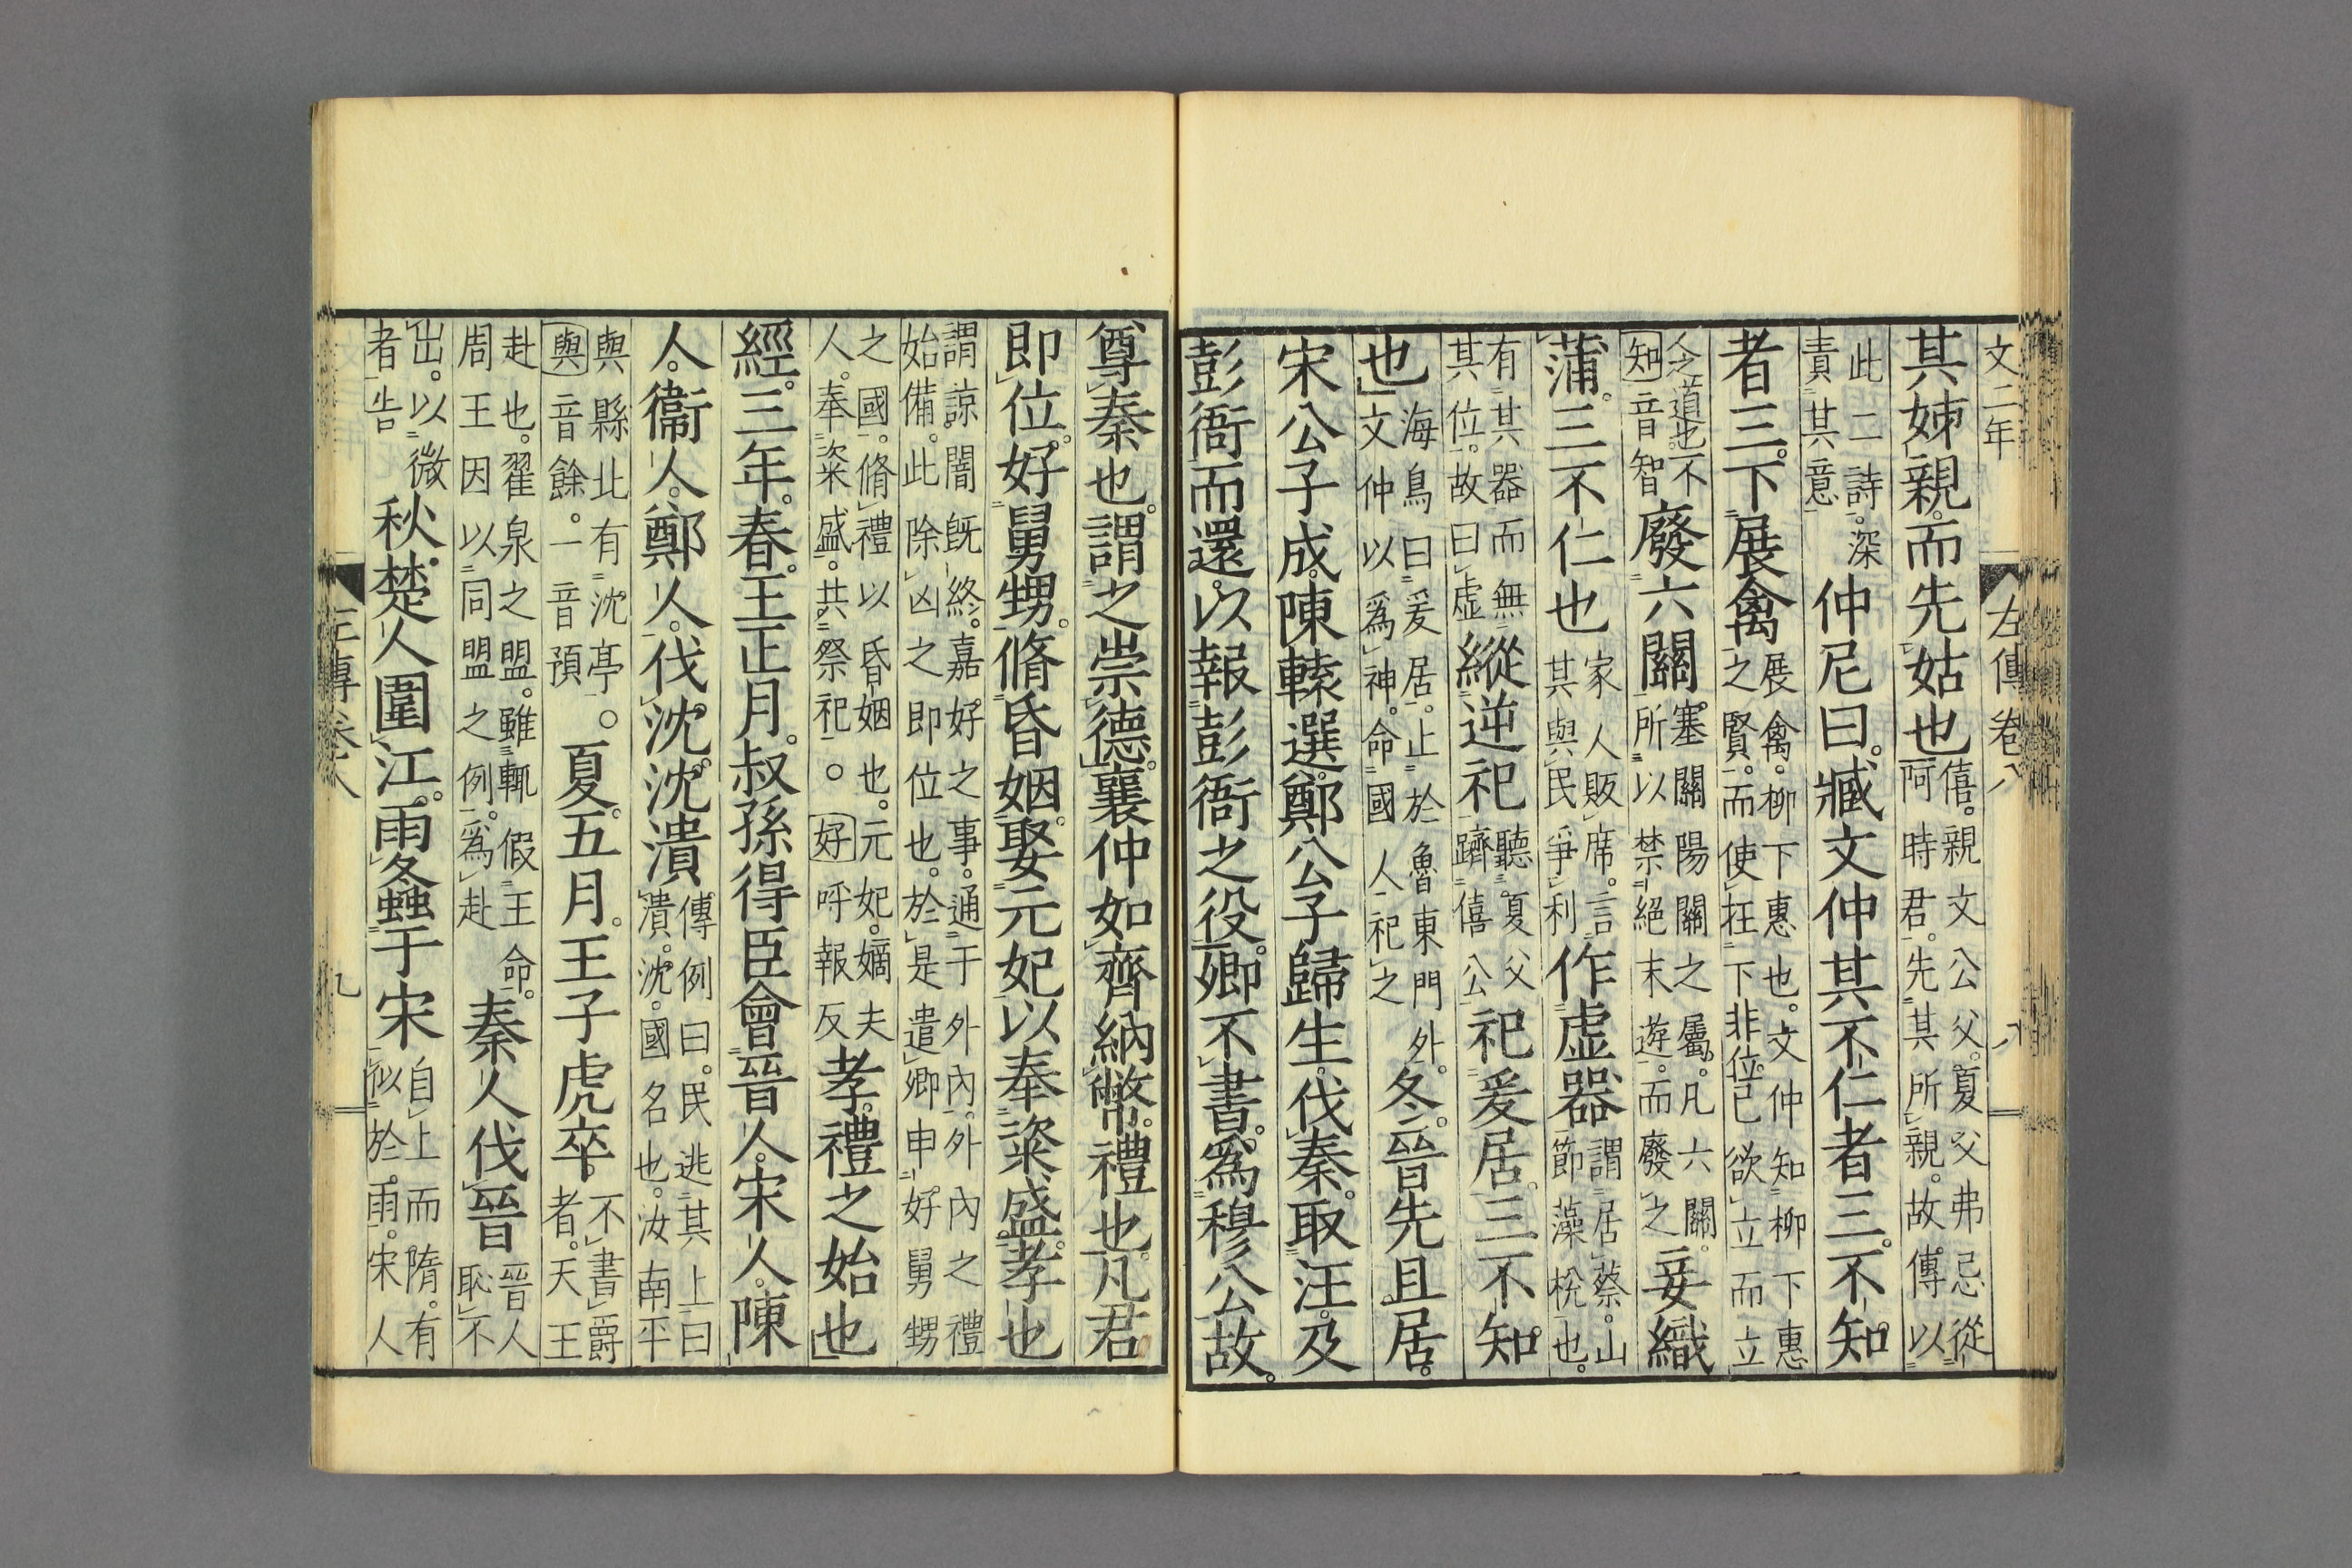 文二年 左傳卷八 八
其姊親。而先姑也
僖。親文公父。夏父弗忌從
阿時君。先其所親。故傳以
此二詩。深
責其意
仲尼曰。臧文仲其不仁者三。不知
者三。下展禽
展禽。柳下惠也。文仲知柳下惠
之賢。而使在下非位。己欲立而立
人之道也。不
知音智
廢六關
塞關陽關之屬。凡六關。
所以禁絕末遊。而廢之
妾織
蒲。三不仁也
家人販席。言
其與民爭利
作虛器
謂居蔡。山
節藻梲也。
有其器而無
其位。故曰虛
縱逆祀
聽夏父
躋僖公
祀爰居。三不知
也
海鳥曰爰居。止於魯東門外。
文仲以爲神。命國人祀之
冬。晉先且居。
宋公子成。陳轅選。鄭公子歸生。伐秦。取汪。及
彭衙而還。以報彭衙之役。卿不書。爲穆公故。
尊秦也。謂之崇德。襄仲如齊納幣。禮也。凡君
即位。好舅甥。脩昏姻。娶元妃以奉粢盛。孝也
謂諒闇旣終。嘉好之事。通于外內。外內之禮
始備。此除凶之即位也。於是遣卿申好舅甥
之國。脩禮以昏姻也。元妃。嫡夫
人。奉粢盛。共祭祀。○好呼報反
孝。禮之始也
經。三年。春。王正月。叔孫得臣會晉人。宋人。陳
人。衞人。鄭人。伐沈。沈潰
傳例曰。民逃其上曰
潰。沈。國名也。汝南平
輿縣北有沈亭。○
輿音餘。一音預
夏。五月。王子虎卒。
不書爵
者。天王
赴也。翟泉之盟。雖輒假王命。
周王因以同盟之例。爲赴
秦人伐晉
晉人
恥不
出。以微
者告
秋。楚人圍江。雨螽于宋
自上而隋。有
似於雨。宋人
左傳卷八 九